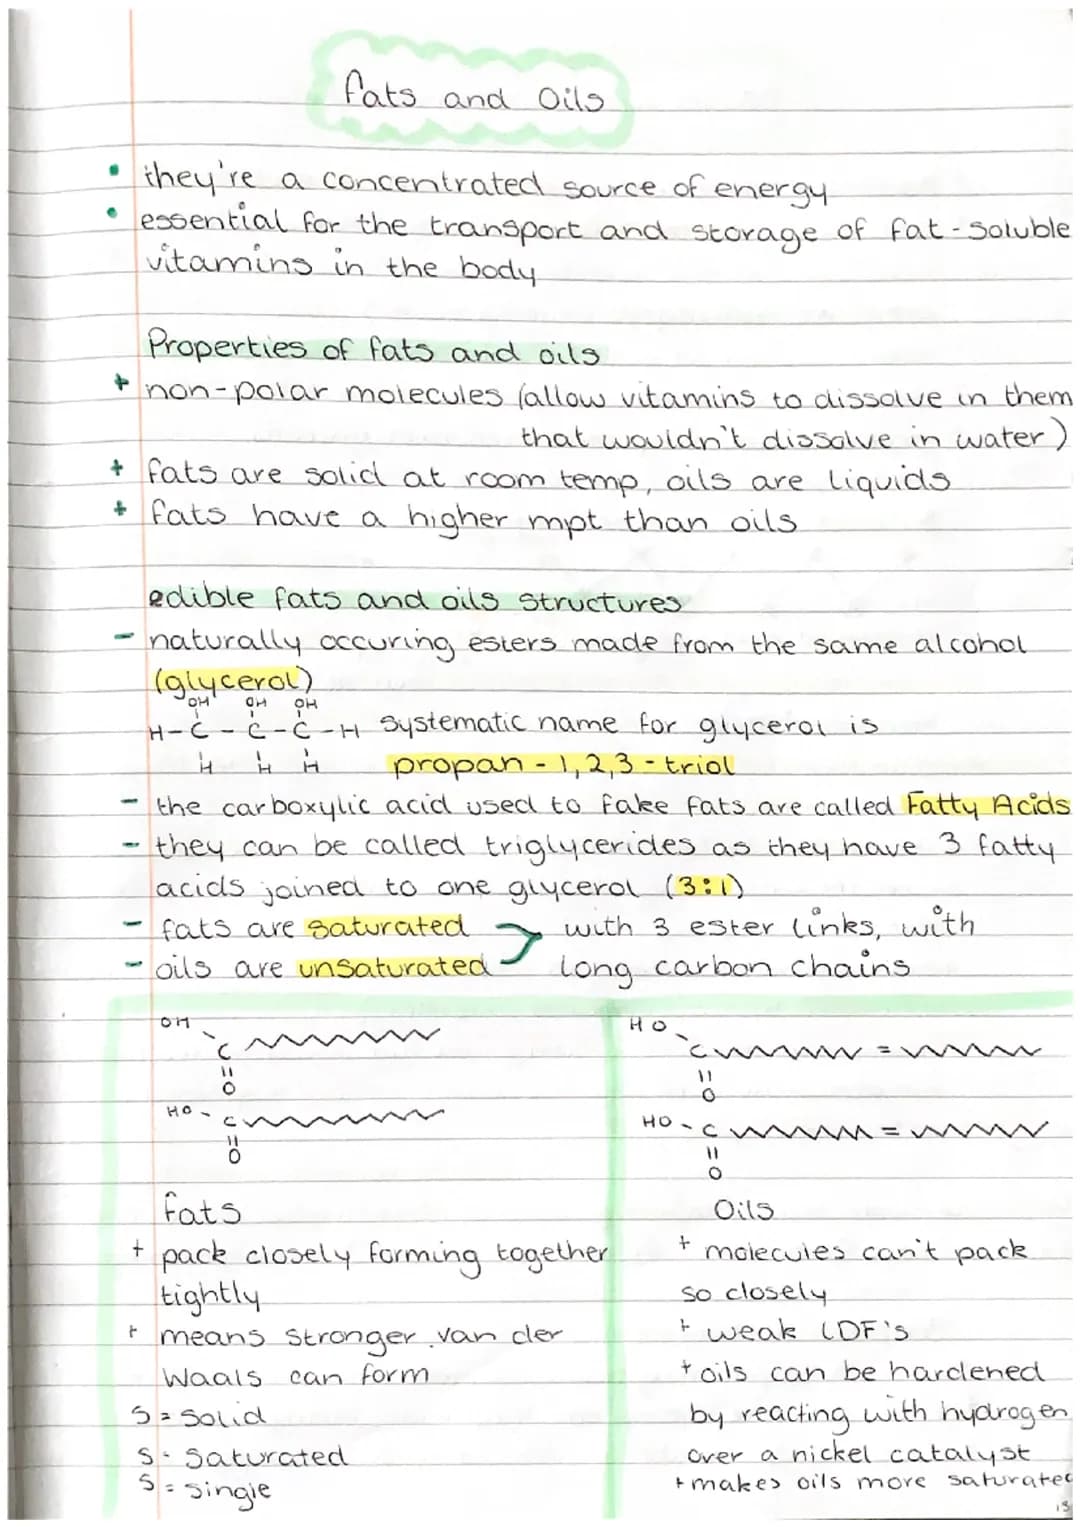 fats and Oils
• they're a concentrated source of energy
• essential for the transport and storage of fat-soluble
vitamins in the body
Properties of fats and oils
+ non-polar molecules (allow vitamins to dissolve in them
that wouldn't dissolve in water)
+ fats are solid at room temp, oils are liquids
+ fats have a higher mpt than oils
edible fats and oils structures
- naturally occuring esters made from the same alcohol
(glycerol)
OH OH OH
H-C-C-C-H systematic name for glycerol is
H H H propan-1,2,3-triol
- the carboxylic acid used to fake fats are called Fatty Acids
- they can be called triglycerides as they have 3 fatty
acids joined to one glycerol (3:1)
- fats are saturated with 3 ester links, with
- oils are unsaturated long carbon chains
OH
C
=
O
HO-C
=
O
fats
+ pack closely forming together
tightly
+ means stronger van der
Waals can form
S = Solid
S - Saturated
S = single
HO
C =
=
O
HO-C =
=
O
Oils
+ molecules can't pack
so closely
+ weak LDF's
+ oils can be hardened
by reacting with hydrogen
over a nickel catalyst
+ makes oils more saturated